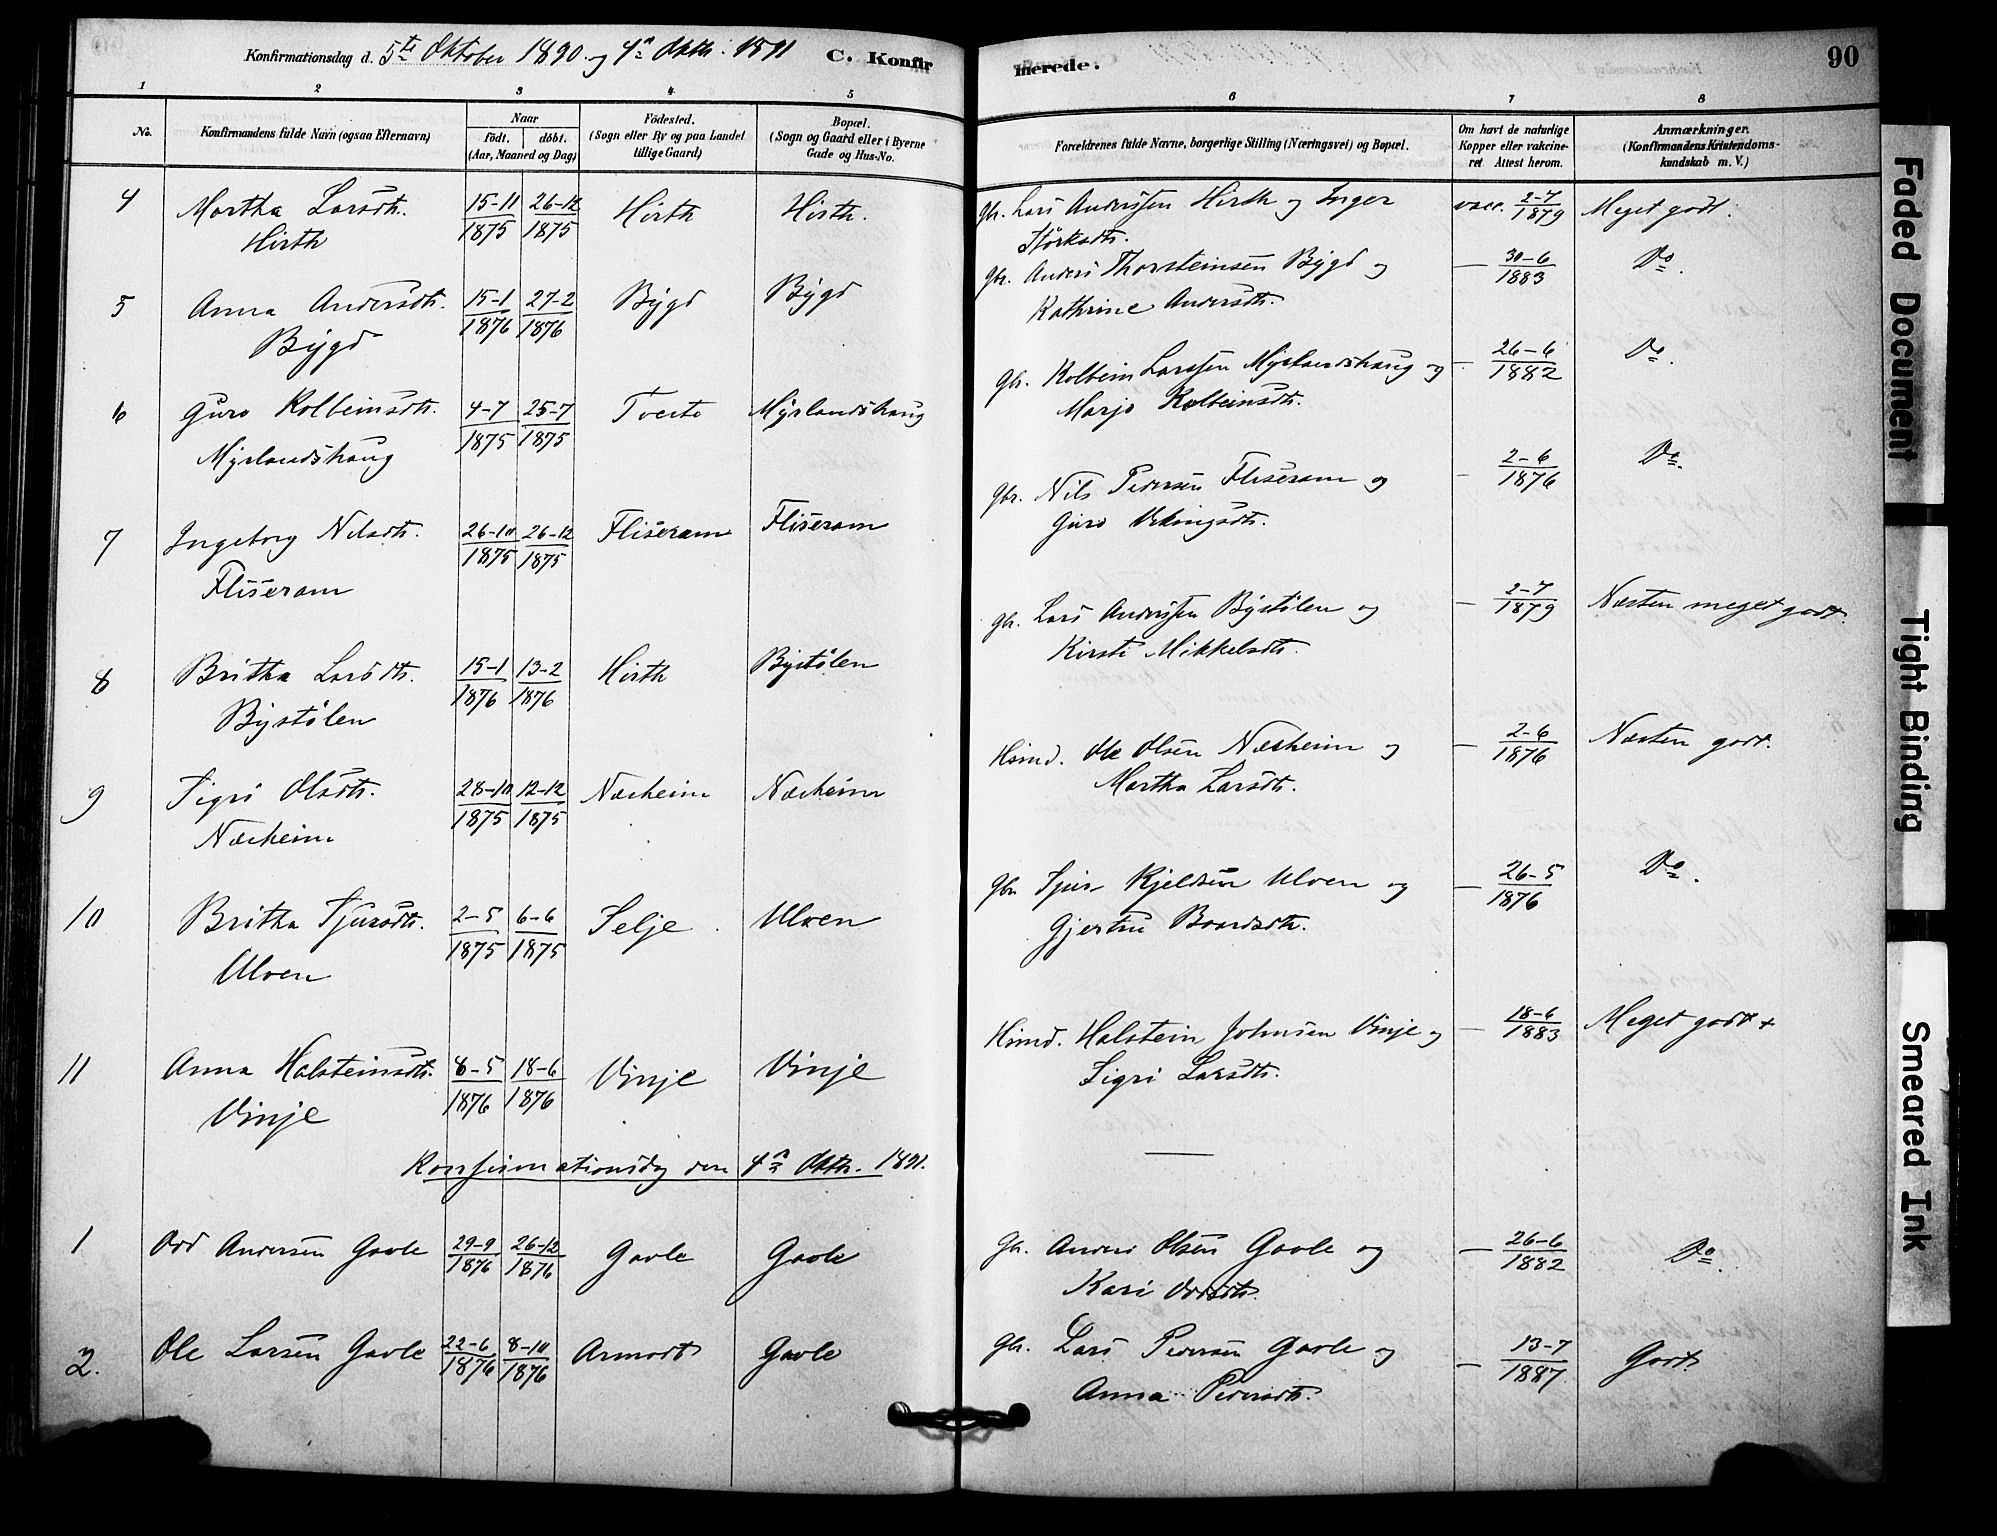 Konfirmationsdag d. 5te Oktober 1890 og 4de Oktbr. 1891 C. Konfirmerede. 90
1 2 3 4 5 6 7 8
No. Konfirmandens fulde Navn (ogsaa Efternavn) Naar födt. döbt. (Aar, Maaned og Dag) Födested. (Sogn eller By og paa Landet tillige Gaard) Bopæl. (Sogn og Gaard eller i Byerne Gade og Hus-No. Forældrenes fulde Navne, borgerlige Stilling (Næringsvei) og Bopæl. Om havt de naturlige Kopper eller vakcineret Attest herom. Anmærkninger. (Konfirmandens Kristendomskundskab m. V.)
4 Martha Larsdtr. 15-11 1875 26-12 1875 Hirth Hirth. Gbr. Lars Anderssen Hirth og Inger vacc. 2-7 1879 Meget godt.
Hirth Störksdtr.
5 Anna Andersdtr. 15-1 1876 27-2 1876 Bygd Bygd Gbr. Anders Thorsteinsen Bygd og — 30-6 1883 Do.
Bygd Kathrine Andersdtr.
6 Guro Kolbeinsdtr. 4-7 1875 25-7 1875 Tveite Myrlandshaug Gbr. Kolbein Larssen Myrlandshaug og — 26-6 1882 Do.
Myrlandshaug Marjo Kolbeinsdtr.
7 Ingeborg Nilsdtr. 26-10 1875 26-12 1875 Fliseram Fliseram Gbr. Nils Pedersen Fliseram og — 2-6 1876 Do.
Fliseram Guro Vikingsdtr.
8 Britha Larsdtr. 15-1 1876 13-2 1876 Hirth Bystölen Gbr. Lars Anderssen Bystölen og — 2-7 1879 Næsten meget godt.
Bystölen Kirsti Mikkelsdtr.
9 Sigri Olsdtr. 28-10 1875 12-12 1875 Næsheim Næsheim Hsmd. Ole Olsen Næsheim og — 2-6 1876 Næsten godt.
Næsheim Martha Larsdtr.
10 Britha Sjursdtr. 2-5 1875 6-6 1875 Selje Ulven Gbr. Sjur Kjeldsen Ulven og — 26-5 1876 Do.
Ulven Gjertru Baardsdtr.
11 Anna Halsteinsdtr. 8-5 1876 18-6 1876 Vinje Vinje Hsmd. Halstein Johnsen Vinje og — 18-6 1883 Meget godt +
Vinje Sigri Larsdtr.
Konfirmationsdag den 4de Oktbr. 1891.
1 Odd Andersen Gavle 29-9 1876 26-12 1876 Gavle Gavle Gbr. Anders Olsen Gavle og — 26-6 1882 Do.
Kari Oddsdtr.
2. Ole Larsen Gavle 22-6 1876 8-10 1876 Armodt Gavle Gbr. Lars Pedersen Gavle og — 13-7 1887 Godt.
Anna Pedersdtr.
Faded Document
Tight Binding
Smeared Ink